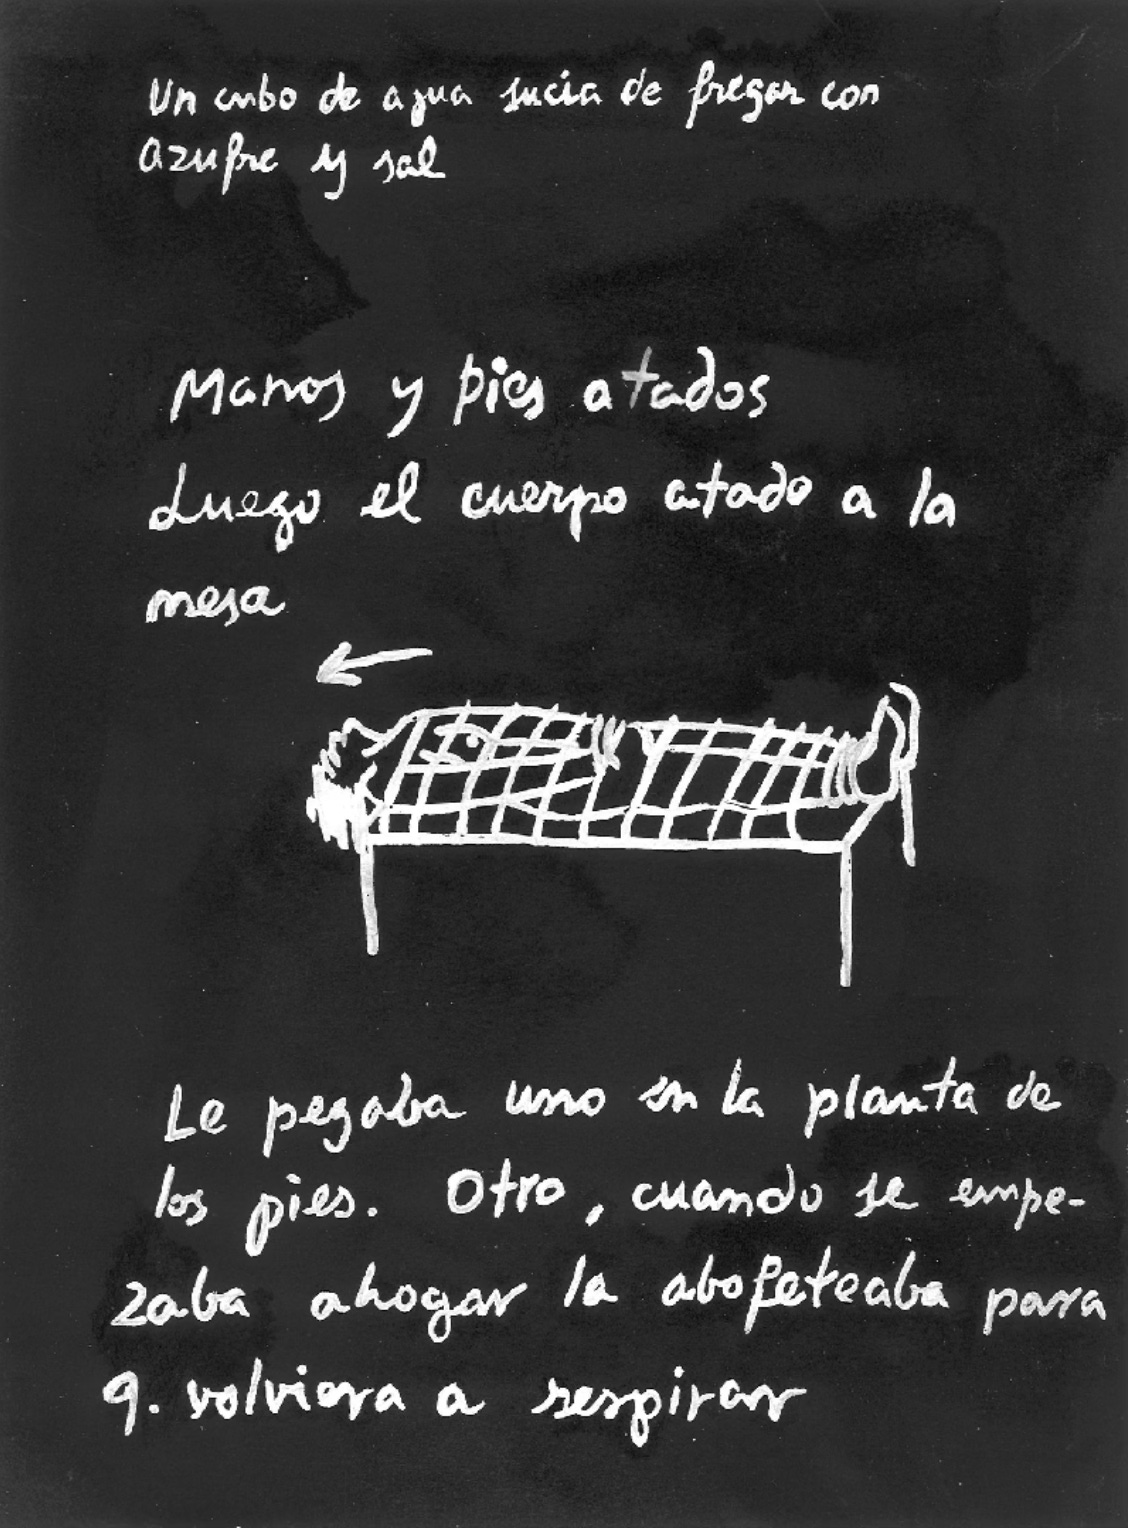 Un cubo de agua sucia de fregar con
azufre y sal
Manos y pies atados
Luego el cuerpo atado a la
mesa
Le pegaba uno en la planta de
los pies. Otro, cuando se empe-
zaba ahogar la abofeteaba para
q. volviera a respirar